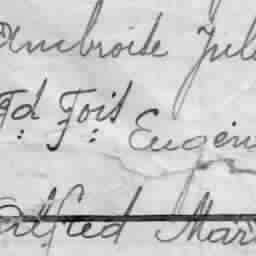 Ambroise Jul
Fd Fois Eugén
Alfred Mar